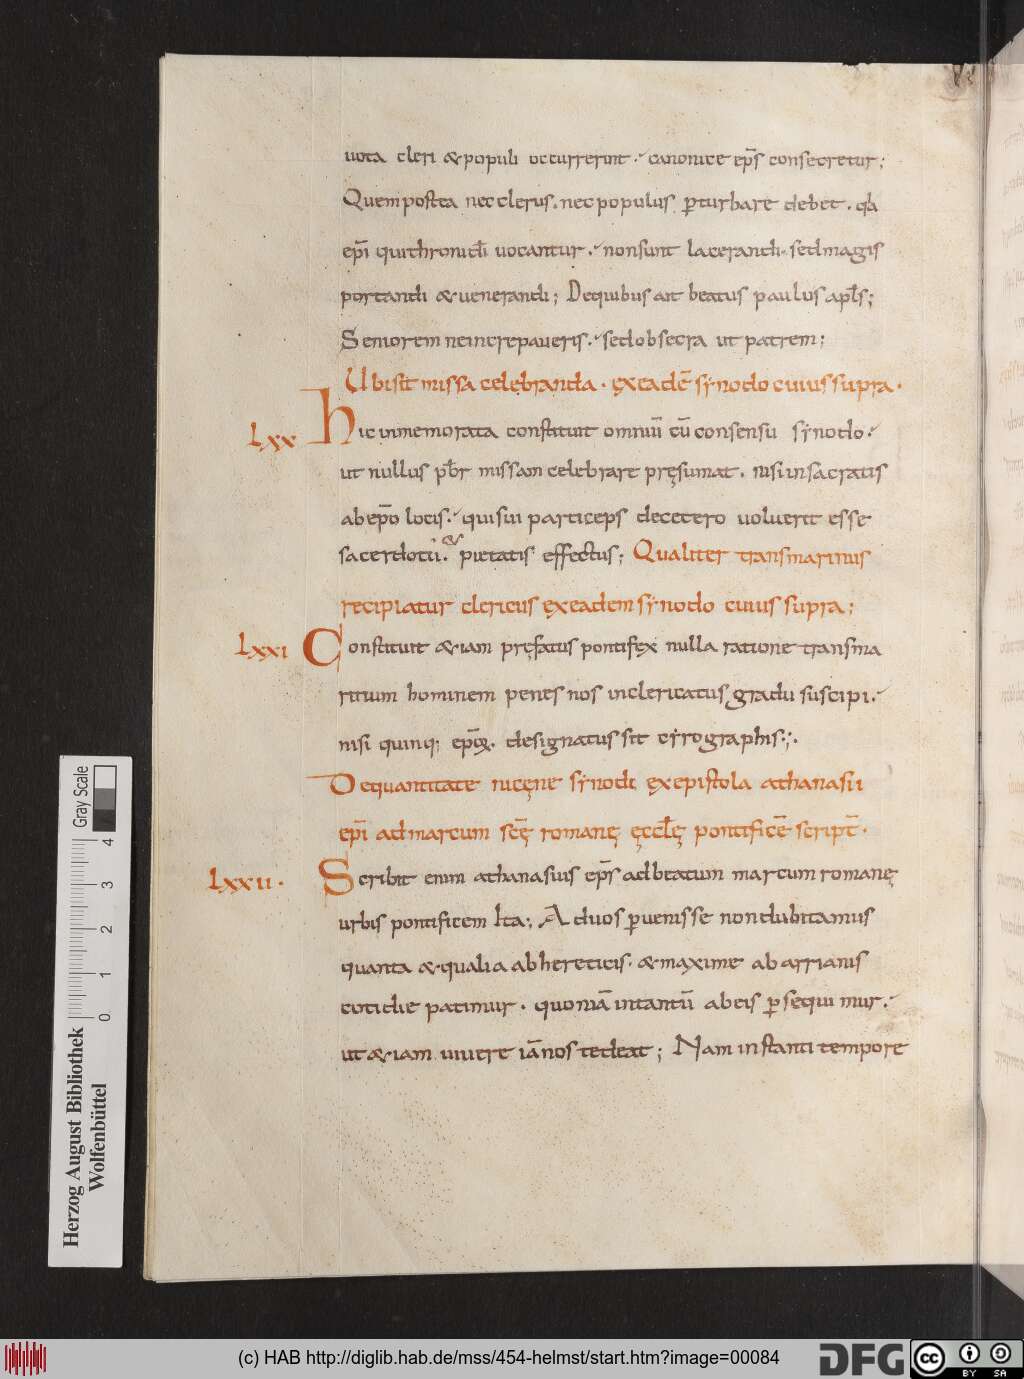 uota cleri & populi occurrerint. canonice ep̄s consecretur;
Quem postea nec clerus. nec populus ꝑturbare debet. qa
ep̄i qui thronidī uocantur. non sunt lacerandi. sed magis
portandi & uenerandi; De quibus ait beatus paulus apłs;
Seniorem ne increpaueris. sed obsecra ut patrem;
Ubi sit missa celebranda. ex eadē synodo cuius supra.
Lxx
hic inmemorata constituit omniū cū consensu synodo.
ut nullus pb̄r missam celebrare pręsumat. nisi in sacratis
ab ep̄o locis. qui sui particeps de cetero uoluerit esse
sacerdotii. & pietatis effectus; Qualiter transmarinus
recipiatur clericus ex eadem synodo cuius supra;
Lxxi
Constituit &iam pręfatus pontifex nulla ratione transma
rinum hominem penes nos in clericatus gradu suscipi.
nisi quinq; ep̄oꝝ. designatus sit cyrographis;.
De quantitate nicęne synodi ex epistola athanasii
ep̄i ad marcum scę̄ romanę ęccłę pontificē script̄.
Lxxii.
Scribit enim athanasius ep̄s ad beatum marcum romanę
urbis pontificem Ita; Ad uos ꝑuenisse non dubitamus
quanta & qualia ab hereticis. & maxime ab arrianis
cotidie patimur. quoniā in tantū ab eis ꝑsequimur.
ut &iam uiuere iā nos tedeat; Nam instanti tempore
Gray Scale
0 1 2 3 4
Herzog August Bibliothek
Wolfenbüttel
(c) HAB http://diglib.hab.de/mss/454-helmst/start.htm?image=00084
DFG
cc BY SA